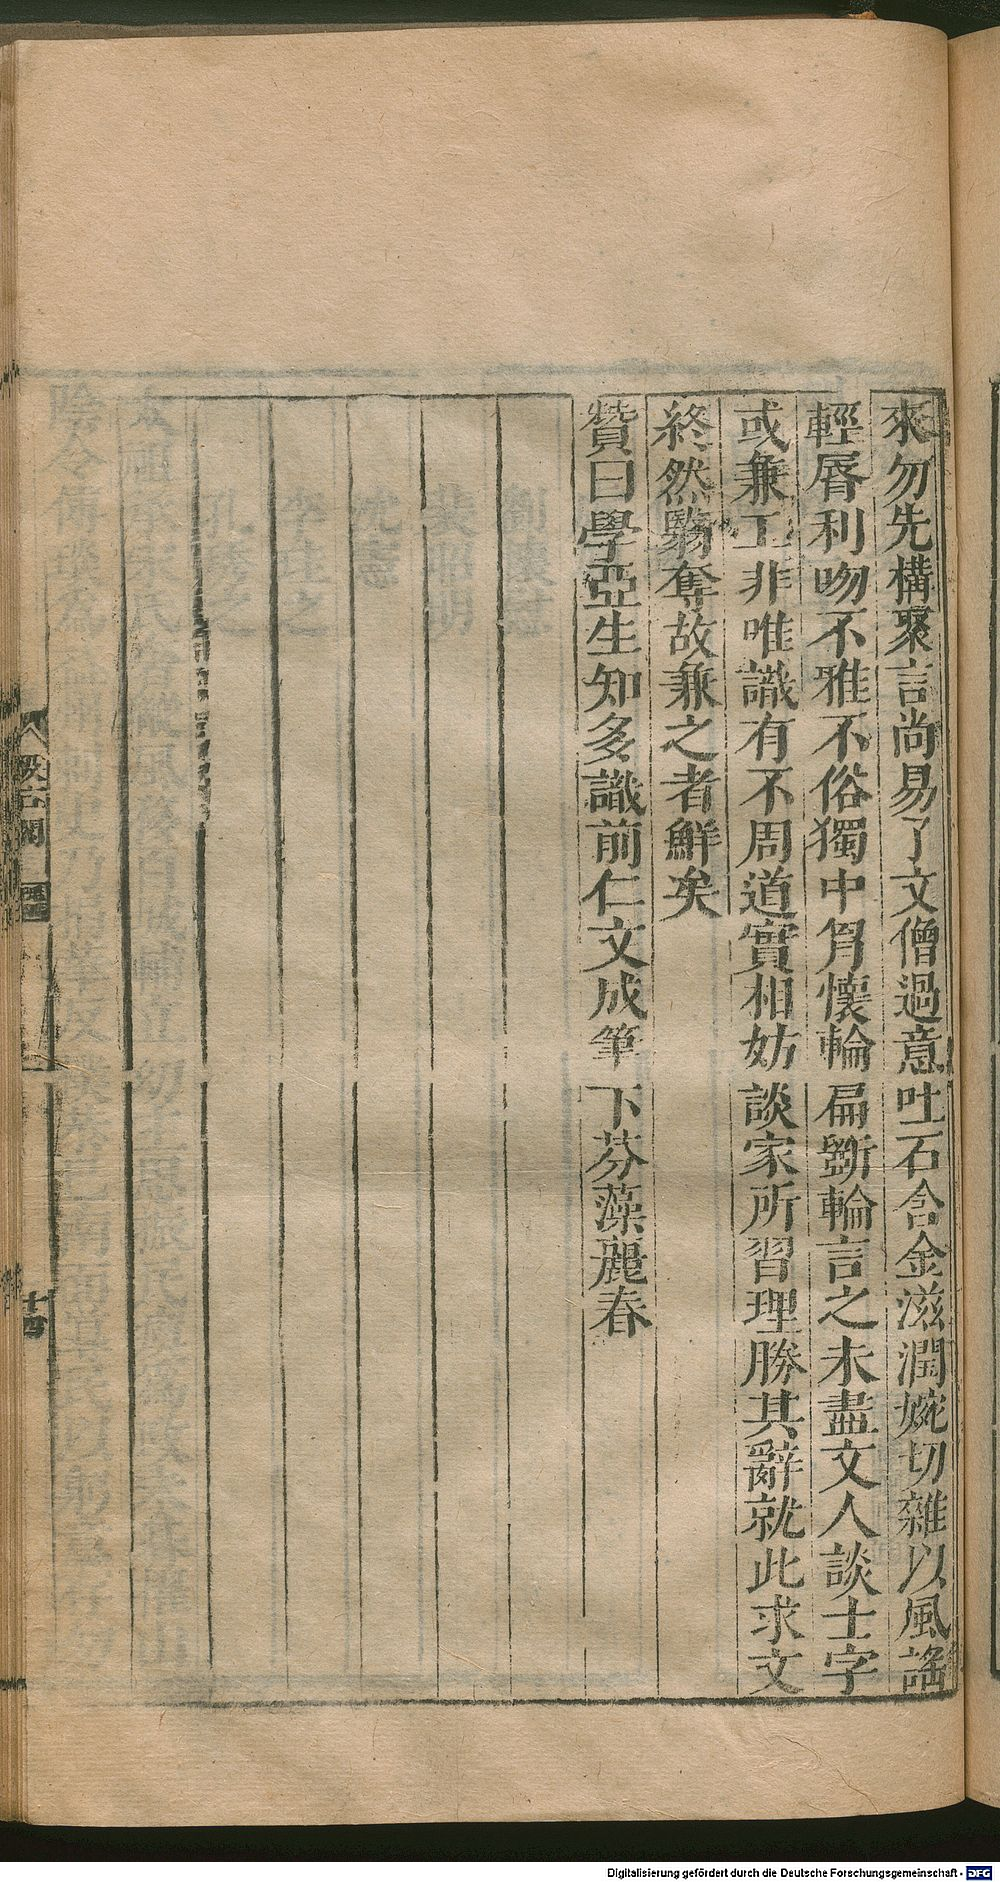 來勿先構聚言尚易了文僧過意吐石含金滋潤婉切雜以風謠
輕脣利吻不雅不俗獨中胷懷輪扁斲輪言之未盡文人談士字
或兼工非唯識有不周道實相妨談家所習理勝其辭就此求文
終然翳奪故兼之者鮮矣
贊曰學亞生知多識前仁文成筆下芬藻麗春
十四
Digitalisierung gefördert durch die Deutsche Forschungsgemeinschaft - DFG